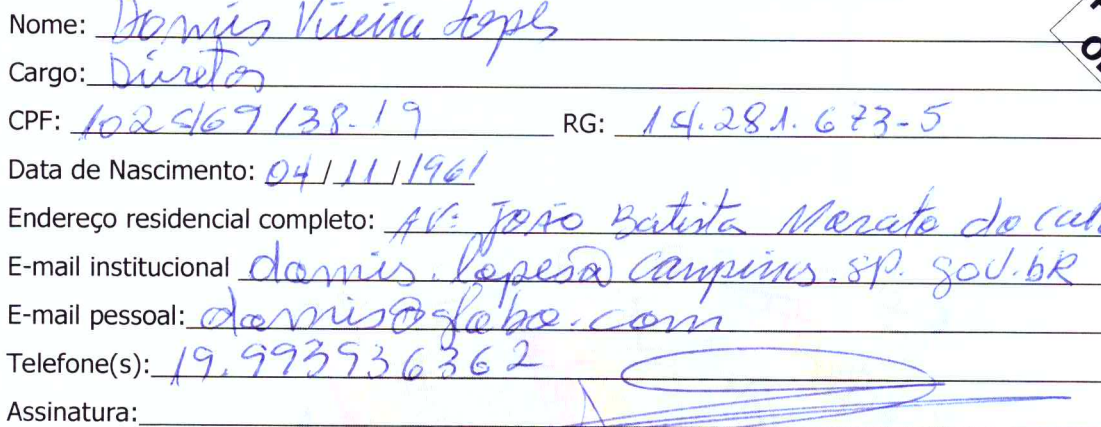 Nome: Domis Vieira Lopes
Cargo: Diretor
CPF: 102469138-19 RG: 14.281.673-5
Data de Nascimento: 04/11/1961
Endereço residencial completo: AV: João Batista Morato do
E-mail institucional domis.lopes@campinas.sp.gov.br
E-mail pessoal: domis@globo.com
Telefone(s): 19.993936362
Assinatura: